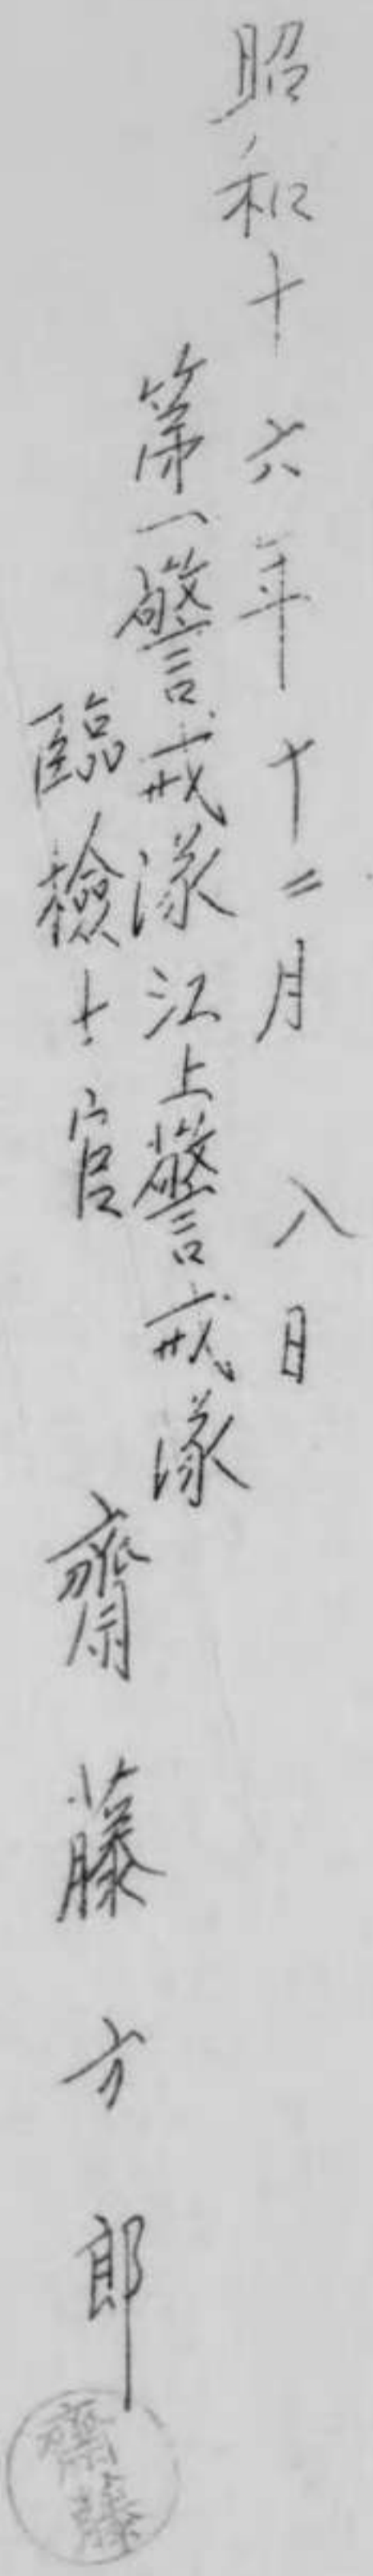 昭和十六年十二月八日
第一警戒隊江上警戒隊
臨檢士官 齋藤方郎
齋藤